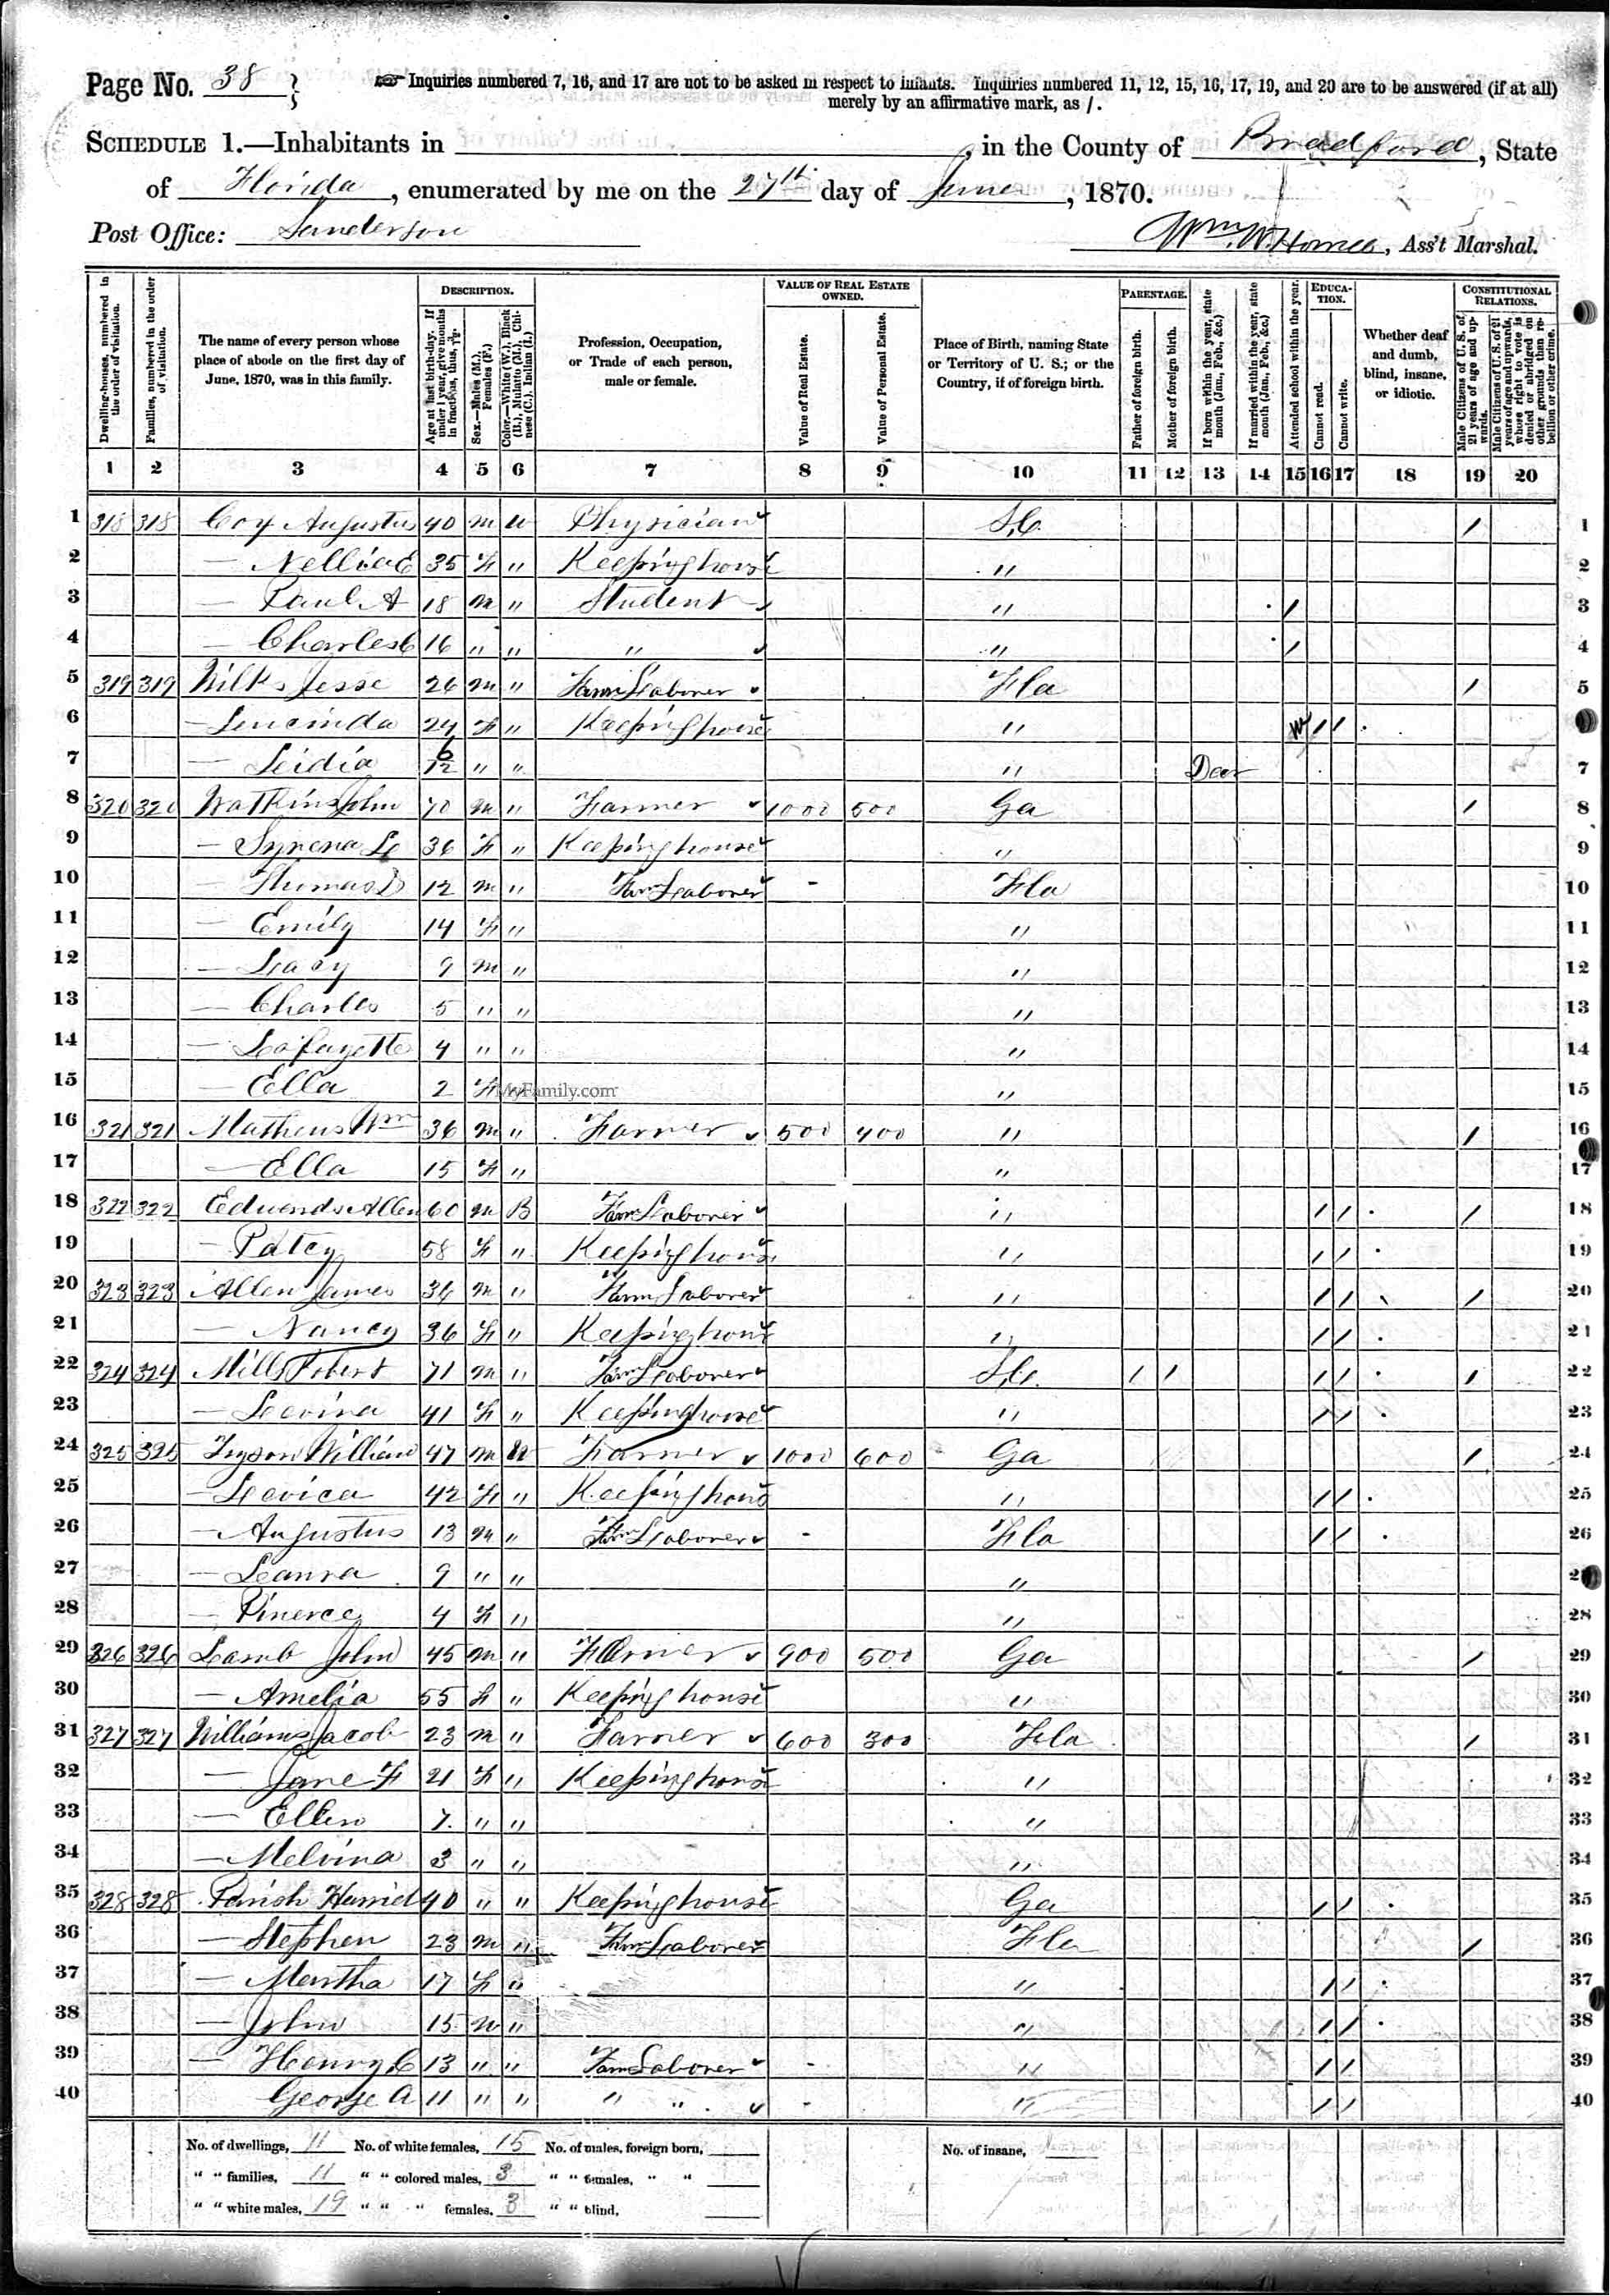 Page No. 38
☞ Inquiries numbered 7, 16, and 17 are not to be asked in respect to infants. Inquiries numbered 11, 12, 15, 16, 17, 19, and 20 are to be answered (if at all)
merely by an affirmative mark, as /.
SCHEDULE 1.—Inhabitants in , in the County of Bradford, State
of Florida, enumerated by me on the 27th day of June, 1870.
Post Office: Sanderson
Wm. W. , Ass't Marshal.
Dwelling-houses, numbered in the order of visitation.
Families, numbered in the order of visitation.
The name of every person whose place of abode on the first day of June, 1870, was in this family.
DESCRIPTION.
Age at last birth-day. If under 1 year, give months in fractions, thus, 3/12.
Sex.—Males (M.), Females (F.)
Color.—White (W.), Black (B.), Mulatto (M.), Chinese (C.), Indian (I.)
Profession, Occupation, or Trade of each person, male or female.
VALUE OF REAL ESTATE OWNED.
Value of Real Estate.
Value of Personal Estate.
Place of Birth, naming State or Territory of U. S.; or the Country, if of foreign birth.
PARENTAGE.
Father of foreign birth.
Mother of foreign birth.
If born within the year, state month (Jan., Feb., &c.)
If married within the year, state month (Jan., Feb., &c.)
Attended school within the year.
EDUCATION.
Cannot read.
Cannot write.
Whether deaf and dumb, blind, insane, or idiotic.
CONSTITUTIONAL RELATIONS.
Male Citizens of U. S. of 21 years of age and upwards.
Male Citizens of U. S. of 21 years of age and upwards, whose right to vote is denied or abridged on other grounds than rebellion or other crime.
1 2 3 4 5 6 7 8 9 10 11 12 13 14 15 16 17 18 19 20
1 318 318 Cox Augustus 40 M W Physician S.C. / 1
2 — Nellie E 35 F " Keeping house " 2
3 — Paul A 18 M " Student " / 3
4 — Charles C 16 " " " " / 4
5 319 319 Wilks Jesse 26 M " Farm Laborer Fla / 5
6 — Lucinda 24 F " Keeping house " / /
7 — Leidia 6/12 " " " Dec 7
8 320 320 Watkins John 70 M " Farmer 1000 500 Ga / 8
9 — Syrena L 36 F " Keeping house " 9
10 — Thomas D 12 M " Farm Laborer Fla 10
11 — Emily 14 F " " 11
12 — Lacy 9 M " " 12
13 — Charles 5 " " " 13
14 — Lafayette 4 " " " 14
15 — Ella 2 F " " 15
MyFamily.com
16 321 321 Mathews Wm 36 M " Farmer 500 400 " / 16
17 — Ella 15 F " " 17
18 322 322 Edwards Allen 60 M B Farm Laborer " / / / 18
19 — Patcy 58 F " Keeping house " / / 19
20 323 323 Allen James 36 M " Farm Laborer " / / / 20
21 — Nancy 36 F " Keeping house " / / 21
22 324 324 Mills Robert 71 M " Farm Laborer S.C. / / / / / 22
23 — Levina 41 F " Keeping house " / / 23
24 325 325 Tyson William 47 M W Farmer 1000 600 Ga / 24
25 — Levica 42 F " Keeping house " / / 25
26 — Augustus 13 M " Farm Laborer Fla / / 26
27 — Leanra 9 " " " 27
28 — 4 F " " 28
29 326 326 Lamb John 45 M " Farmer 900 500 Ga / 29
30 — Amelia 55 F " Keeping house " 30
31 327 327 Williams Jacob 23 M " Farmer 600 300 Fla / 31
32 — Jane F 21 F " Keeping house " 32
33 — Ellen 7 " " " 33
34 — Melvina 3 " " " 34
35 328 328 Parish Harriet 40 " " Keeping house Ga / / 35
36 — Stephen 23 M " Farm Laborer Fla / 36
37 — Martha 17 F " " / / 37
38 — John 15 M " " / / 38
39 — Henry C 13 " " Farm Laborer " / / 39
40 George A 11 " " " " " / / 40
No. of dwellings, 11 No. of white females, 15 No. of males, foreign born, No. of insane,
" " families, 11 " " colored males, 3 " " females, " "
" " white males, 19 " " " females, 3 " " blind,